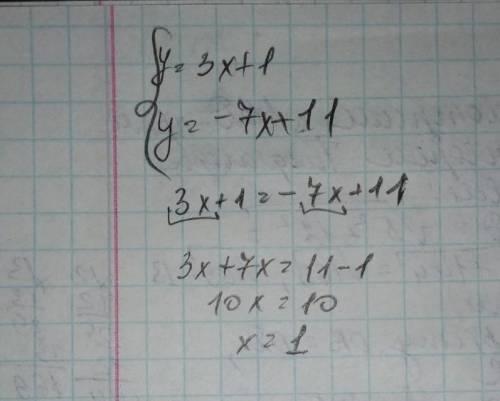 y = 3x+1
y = -7x+11
3x+1 = -7x+11
3x+7x = 11-1
10x = 10
x = 1